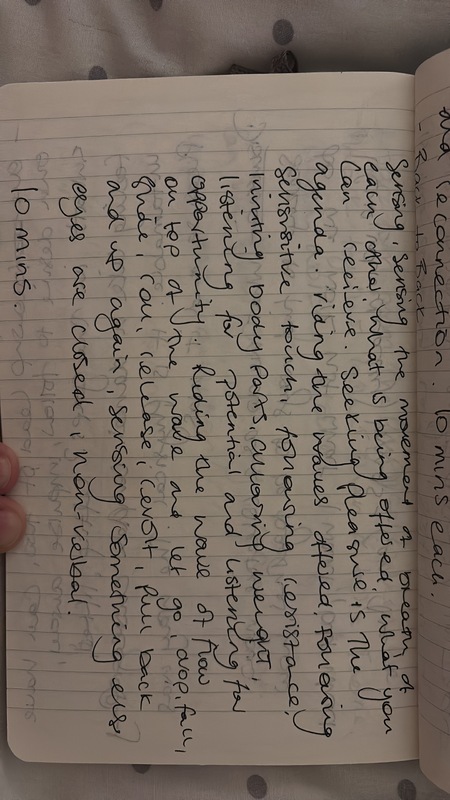 and reconnection. 10 mins each.
- Back to Back
Sensing, sensing the movement of breath of
each other. What is being offered, what you
can recieve. Seeking pleasure is the
agenda. riding the waves offered, following
sensitive touch, following resistance,
body parts, allowing weight,
listening for potential and listening for
opportunity. Riding the wave of flow
on top of the wave and let go, drop, fall,
glide, roll, release, revolt, pull back
and up again, sensing something else
eyes are closed, non-verbal.
10 mins.